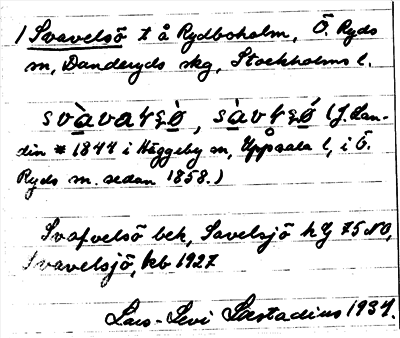 1 Svavelsö t å Rydboholm, Ö. Ryds
sn, Danderyds skg, Stockholms l.
(J. Lan-
din * 1844 i Häggeby sn, Uppsala l, i Ö.
Ryds sn. sedan 1858.)
Svafvelsö bek, Savelsjö hY 75 NO,
Svavelsjö, kb 1927
Lars-Levi Læstadius 1934.